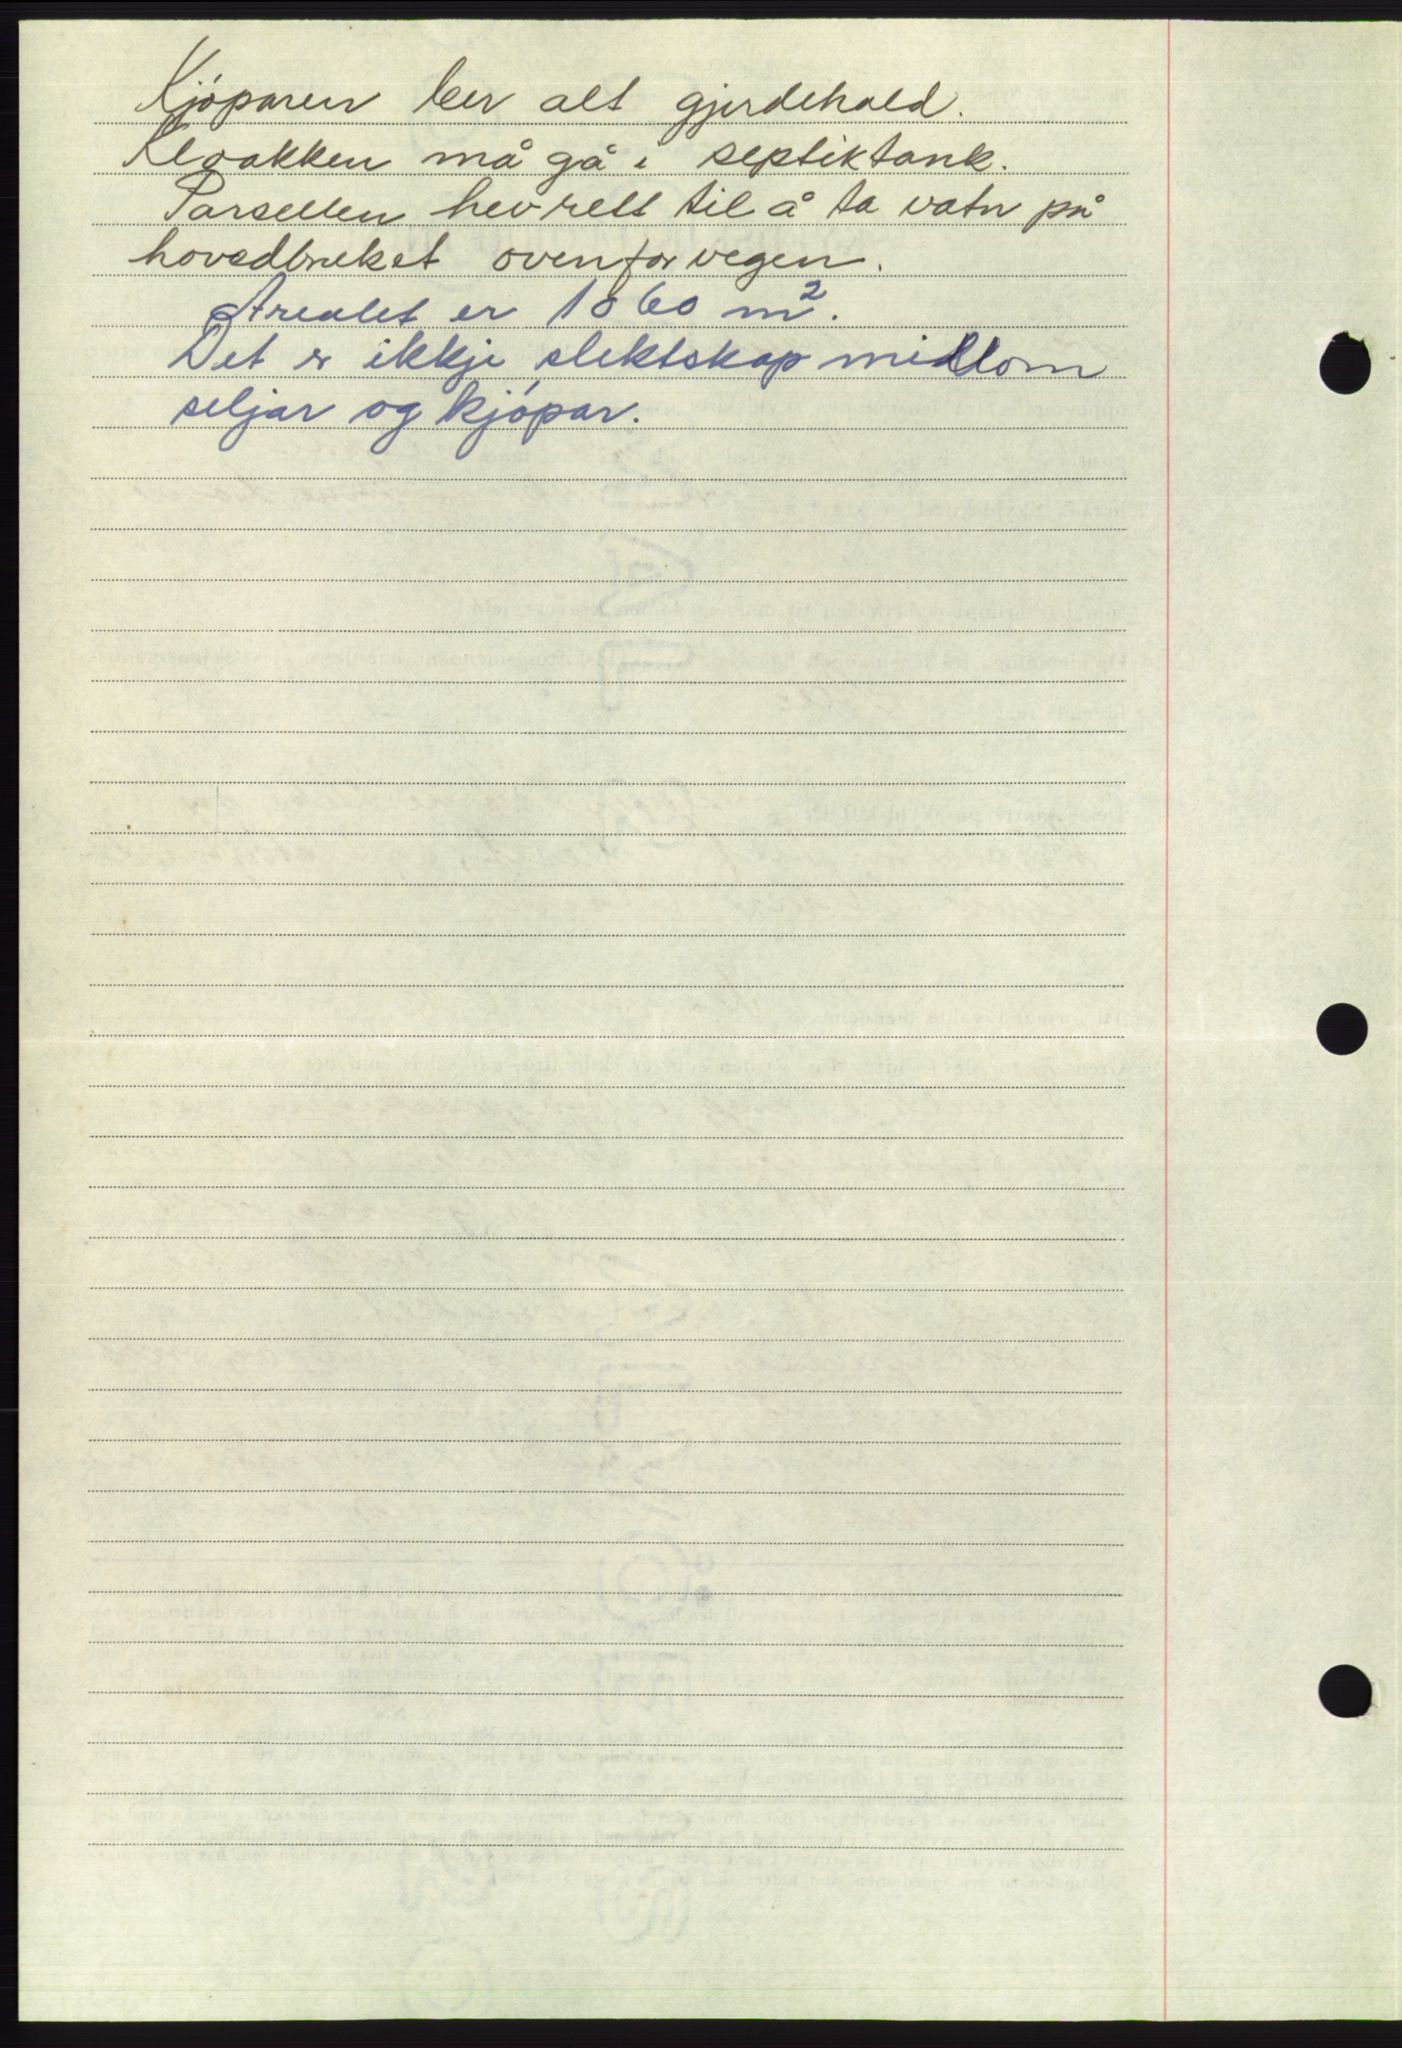 Kjóparen ber alt gjerdehald.
Kloakken må gå i septiktank.
Parsellen hev rett til å ta vatn på
hovedbruket ovenfor vegen.
Arealet er 1860 m².
Det er ikkje slektskap millom
seljar og kjópar.